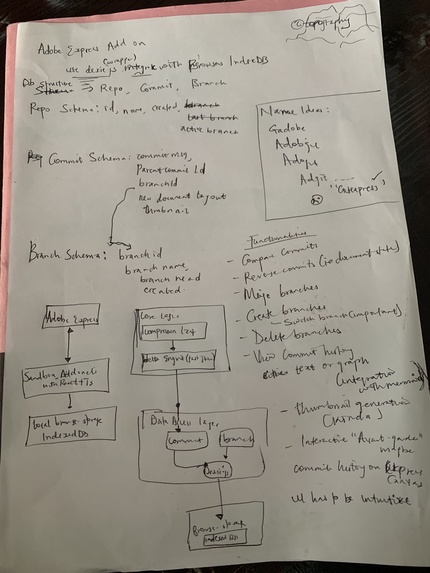 @topography
Adobe Express Add on
use dexie.js (wrapper) integrate with Browser IndexDB
Db structure ⇒ Repo, Commit, Branch
Repo Schema: id, name, created,
active branch
Name Ideas:
Gadobe
Adobgit
"Gitexpress" ✓
Commit Schema: commit msg,
Parent commit Id
branchId
new document layout
thumbnail
Branch Schema: branch id
branch name,
branch head
created
Functionalities
- Compare commits
- Reverse commits (to document state)
- Merge branches
- Create branches
- Switch branch (important)
- Delete branches
- View Commit history
either text or graph
(integration with mermaid)
- thumbnail generation
- Interactive "Avant-garde"
maybe
commit history on express
Canvas
UI has to be intuitive
Adobe Express
Sandbox Add on
with React+Ts
Local browser storage
IndexedDB
Core Logic
Compression LZ4
Delta Engine
Data Access layer
Commit
branch
Dexie.js
Browser storage
Indexed DB